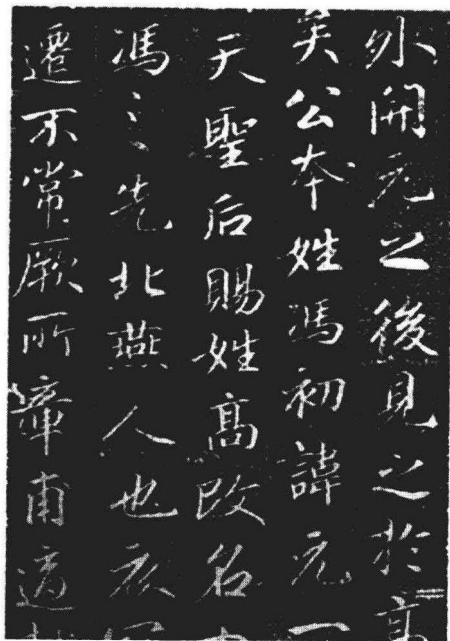 外開元之後見之於高
矣公本姓馮初諱元一
天聖后賜姓高改名
馮之先北燕人也衣冠
遷不常厥所章甫適越